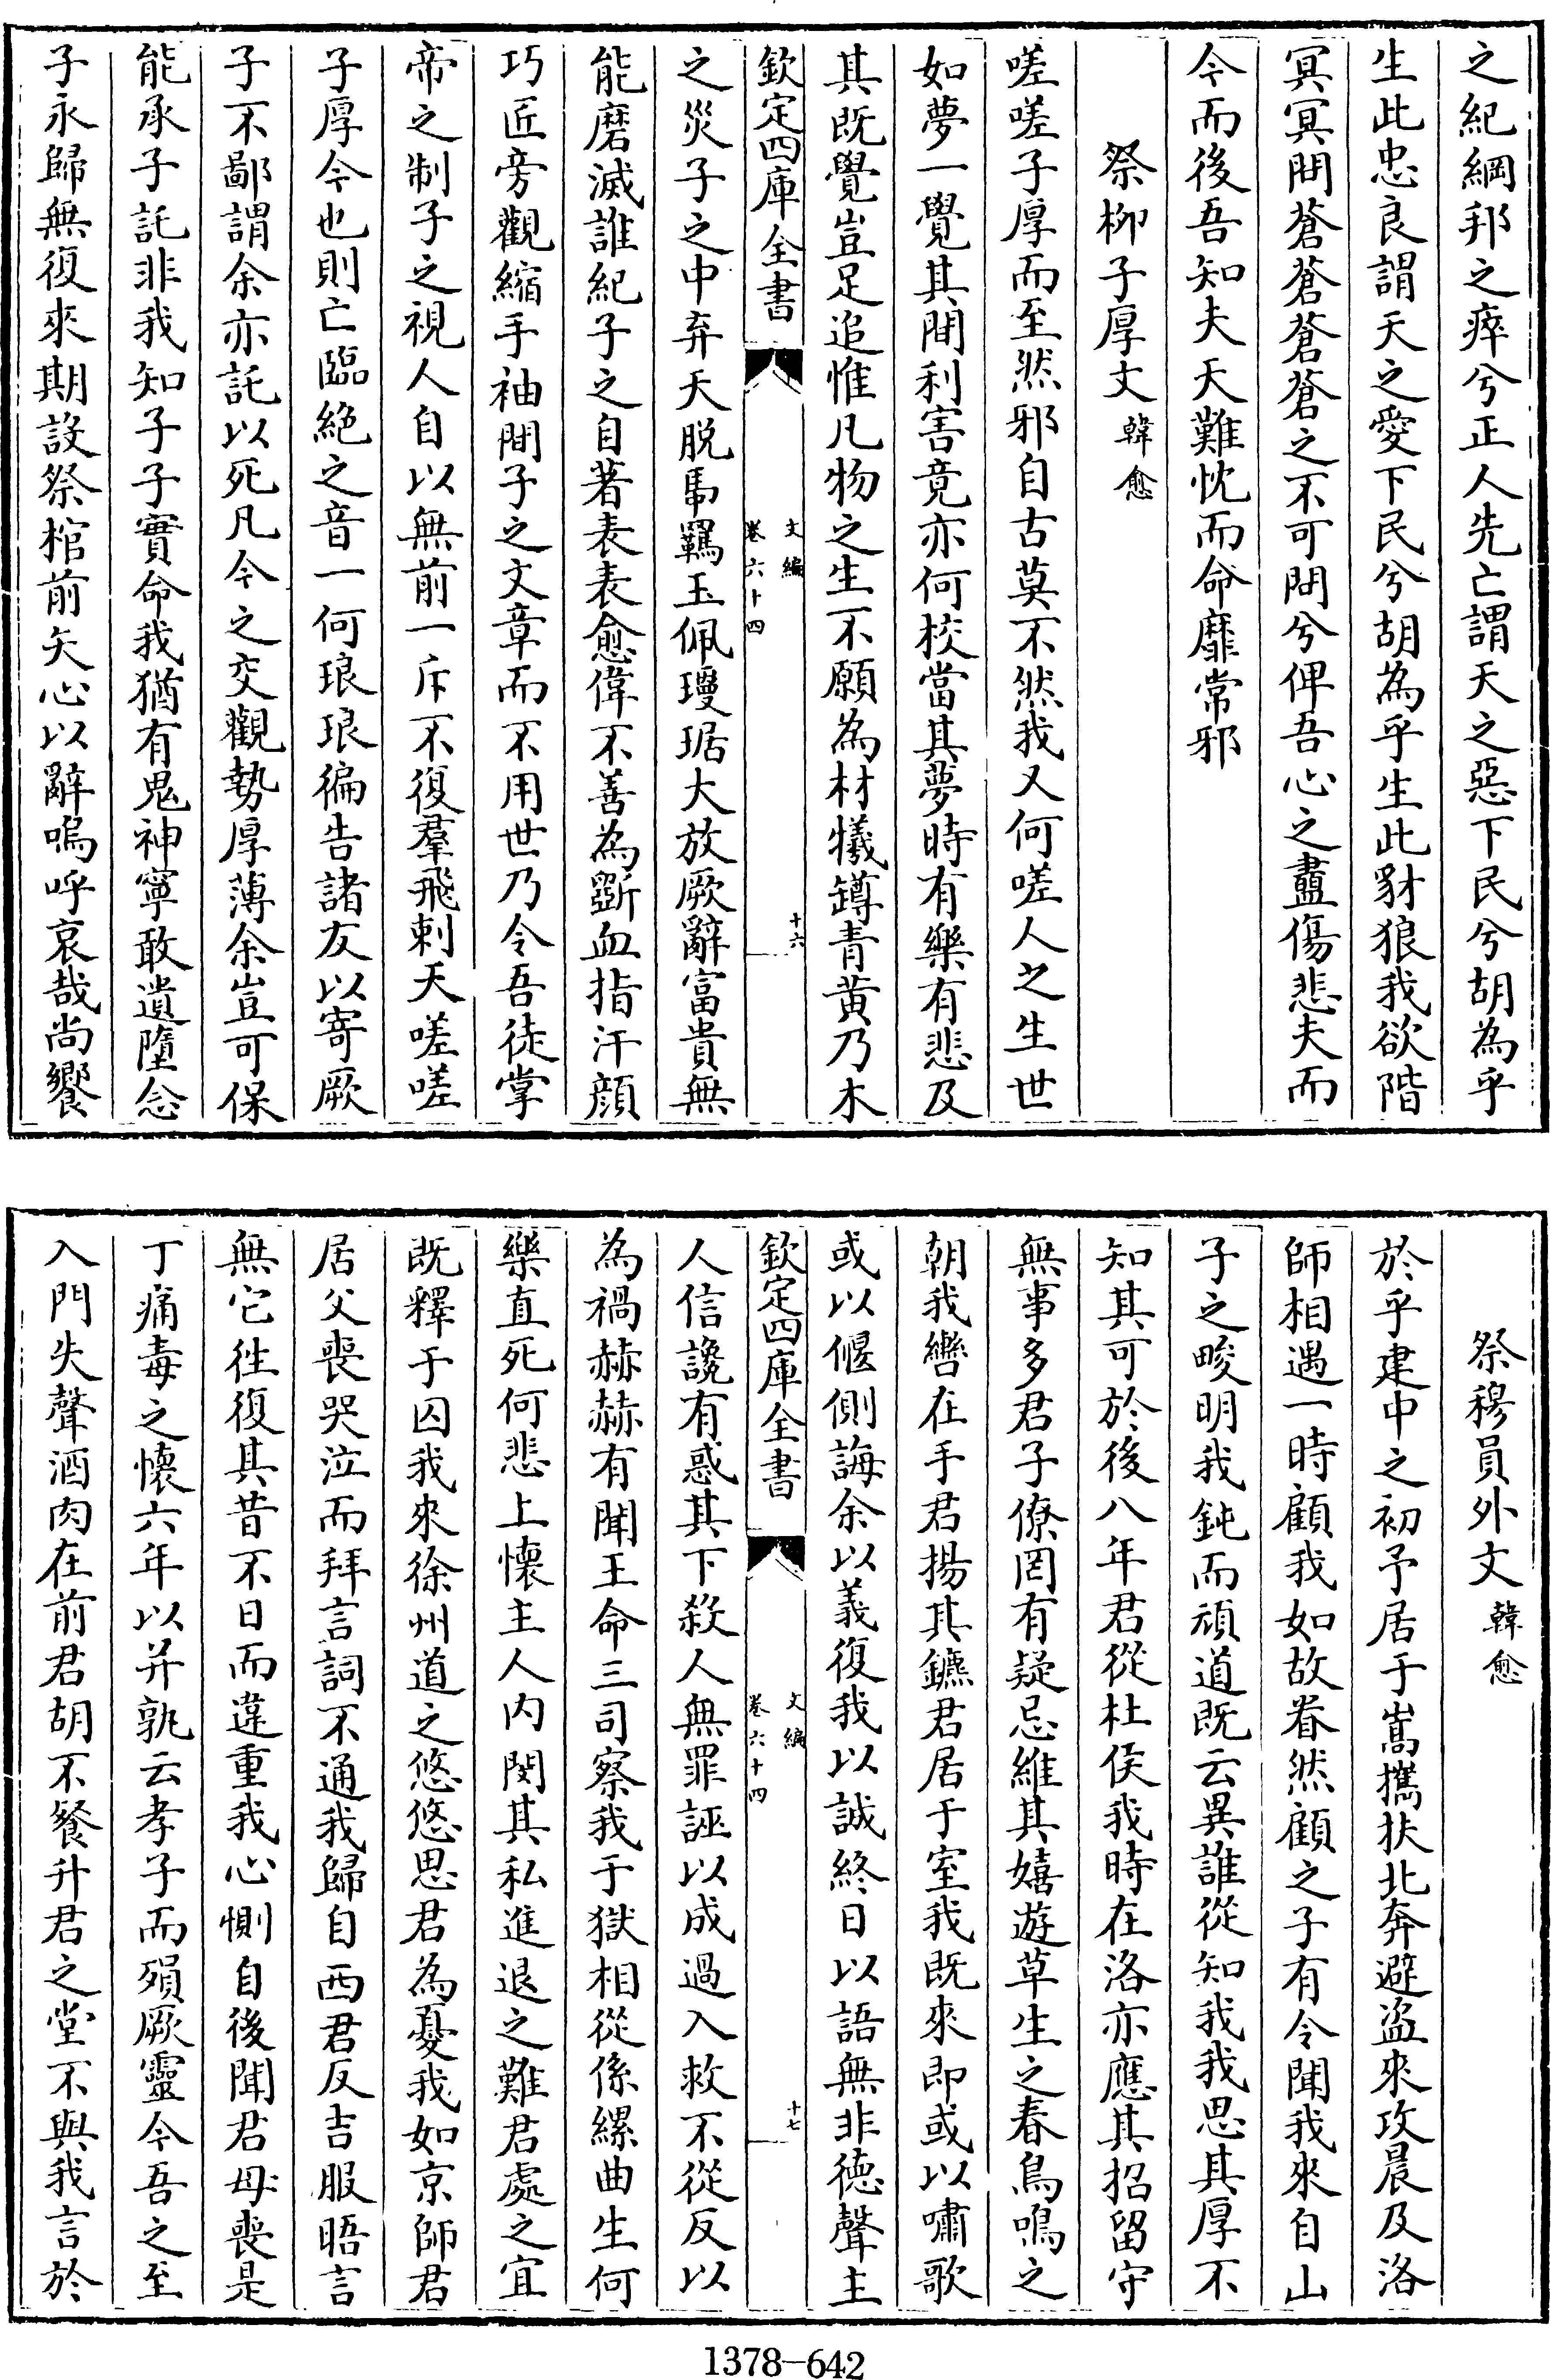 之紀綱邦之瘁兮正人先亡謂天之惡下民兮胡為乎
生此忠良謂天之愛下民兮胡為乎生此豺狼我欲階
冥冥問蒼蒼蒼蒼之不可問兮俾吾心之衋傷悲夫而
今而後吾知夫天難忱而命靡常邪
祭柳子厚文韓愈
嗟嗟子厚而至然邪自古莫不然我又何嗟人之生世
如夢一覺其間利害竟亦何校當其夢時有樂有悲及
其既覺豈足追惟凡物之生不願為材犧罇青黃乃木
欽定四庫全書
文編
卷六十四
十六
之災子之中弃天脫馽羈玉佩瓊琚大放厥辭富貴無
能磨滅誰紀子之自著表表愈偉不善為斲血指汗顏
巧匠旁觀縮手袖間子之文章而不用世乃令吾徒掌
帝之制子之視人自以無前一斥不復羣飛刺天嗟嗟
子厚今也則亡臨絕之音一何琅琅徧告諸友以寄厥
子不鄙謂余亦託以死凡今之交觀勢厚薄余豈可保
能承子託非我知子子實命我猶有鬼神寧敢遺墮念
子永歸無復來期設祭棺前矢心以辭嗚呼哀哉尚饗
祭穆員外文韓愈
於乎建中之初予居于嵩攜扶北奔避盜來攻晨及洛
師相遇一時顧我如故眷然顧之子有令聞我來自山
子之畯明我鈍而頑道既云異誰從知我我思其厚不
知其可於後八年君從杜侯我時在洛亦應其招留守
無事多君子僚罔有疑忌維其嬉遊草生之春鳥鳴之
朝我轡在手君揚其鑣君居于室我既來即或以嘯歌
或以偃側誨余以義復我以誠終日以語無非德聲主
欽定四庫全書
文編
卷六十四
十七
人信讒有惑其下殺人無罪誣以成過入救不從反以
為禍赫赫有聞王命三司察我于獄相從係縲曲生何
樂直死何悲上懷主人內閔其私進退之難君處之宜
既釋于囚我來徐州道之悠悠思君為憂我如京師君
居父喪哭泣而拜言詞不通我歸自西君反吉服晤言
無它往復其昔不日而違重我心惻自後聞君母喪是
丁痛毒之懷六年以并孰云孝子而殞厥靈今吾之至
入門失聲酒肉在前君胡不餐升君之堂不與我言於
1378-642